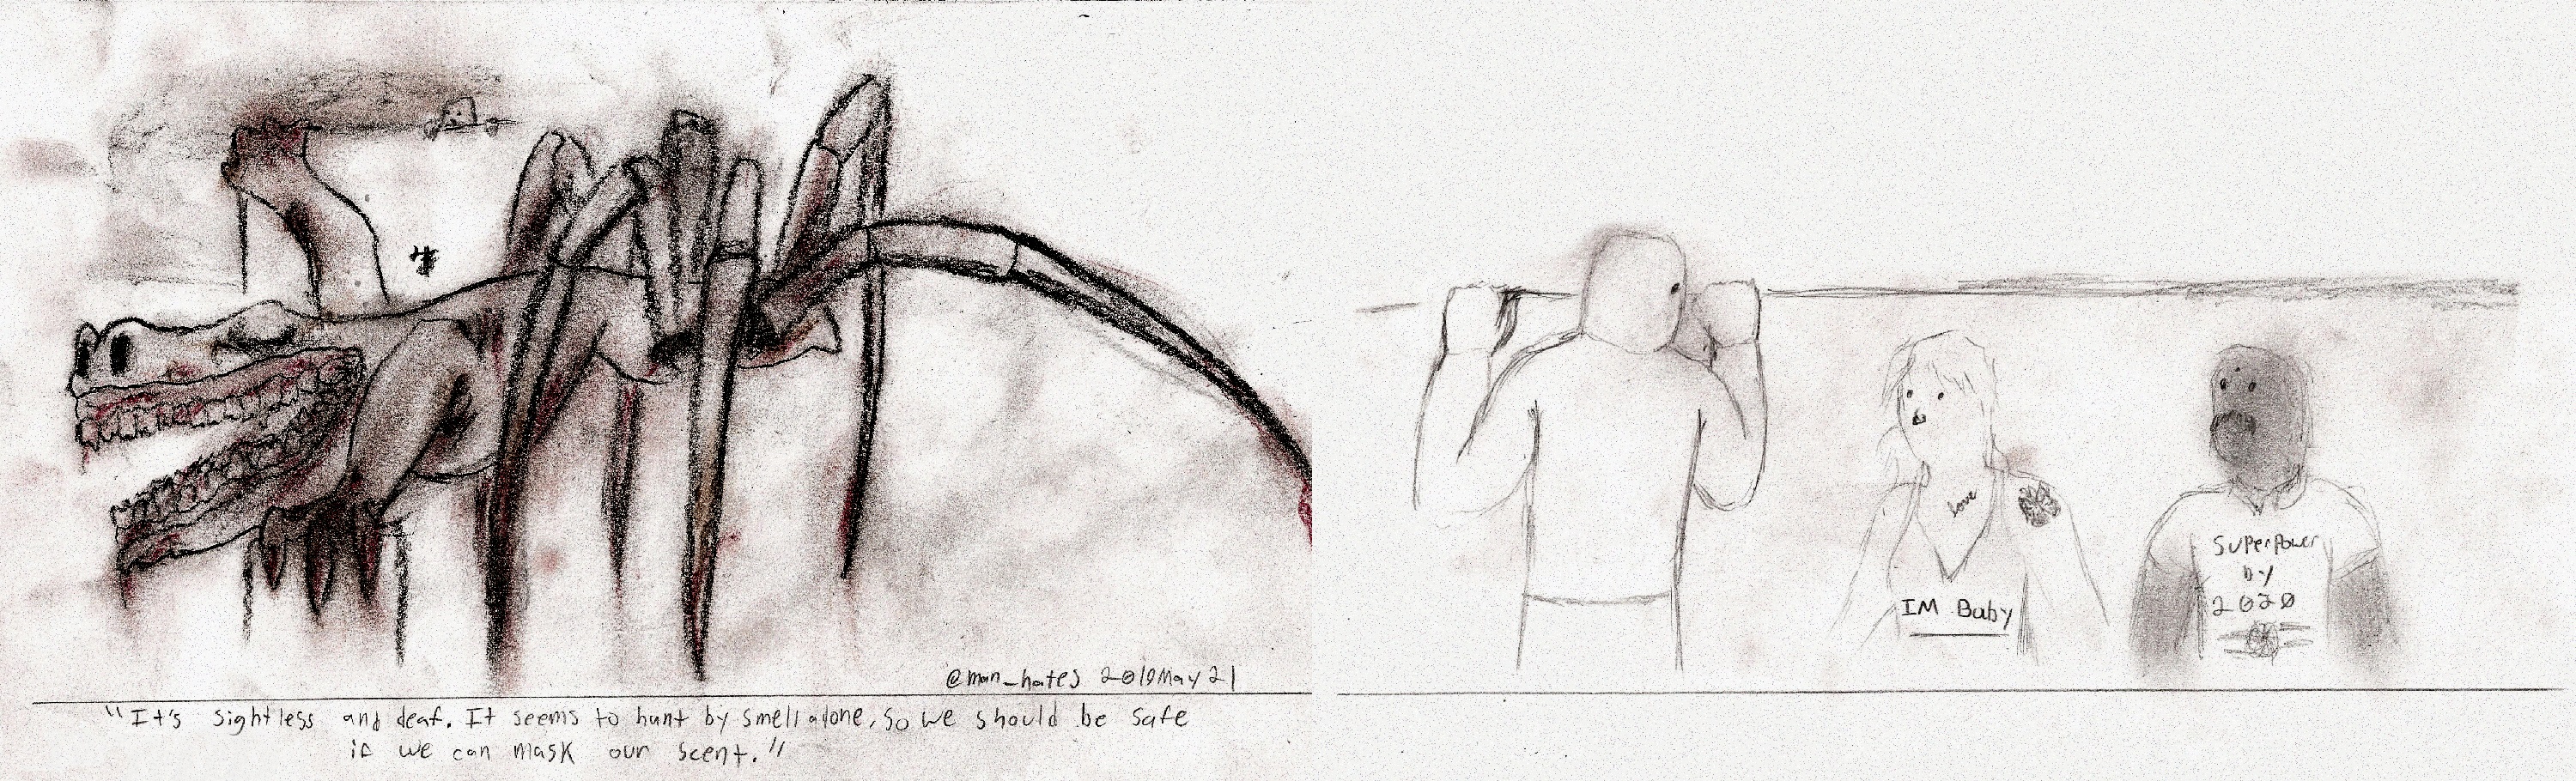 @man_hates 2019May21
"It's sightless and deaf. It seems to hunt by smell alone, so we should be safe
if we can mask our scent."
love
IM Baby
SuperPower
by
2020